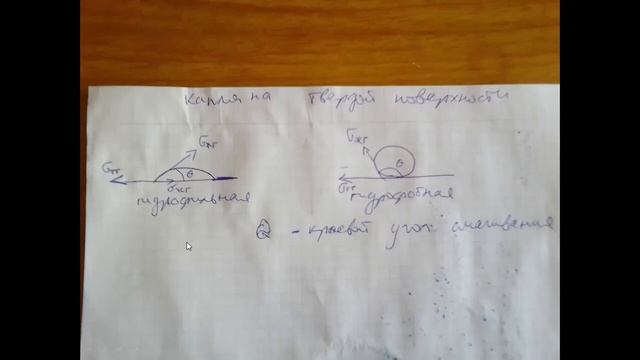 капля на твердой поверхности
σжг σжг
σтг θ θ
σтг
гидрофильная гидрофобная
θ - краевой угол смачивания